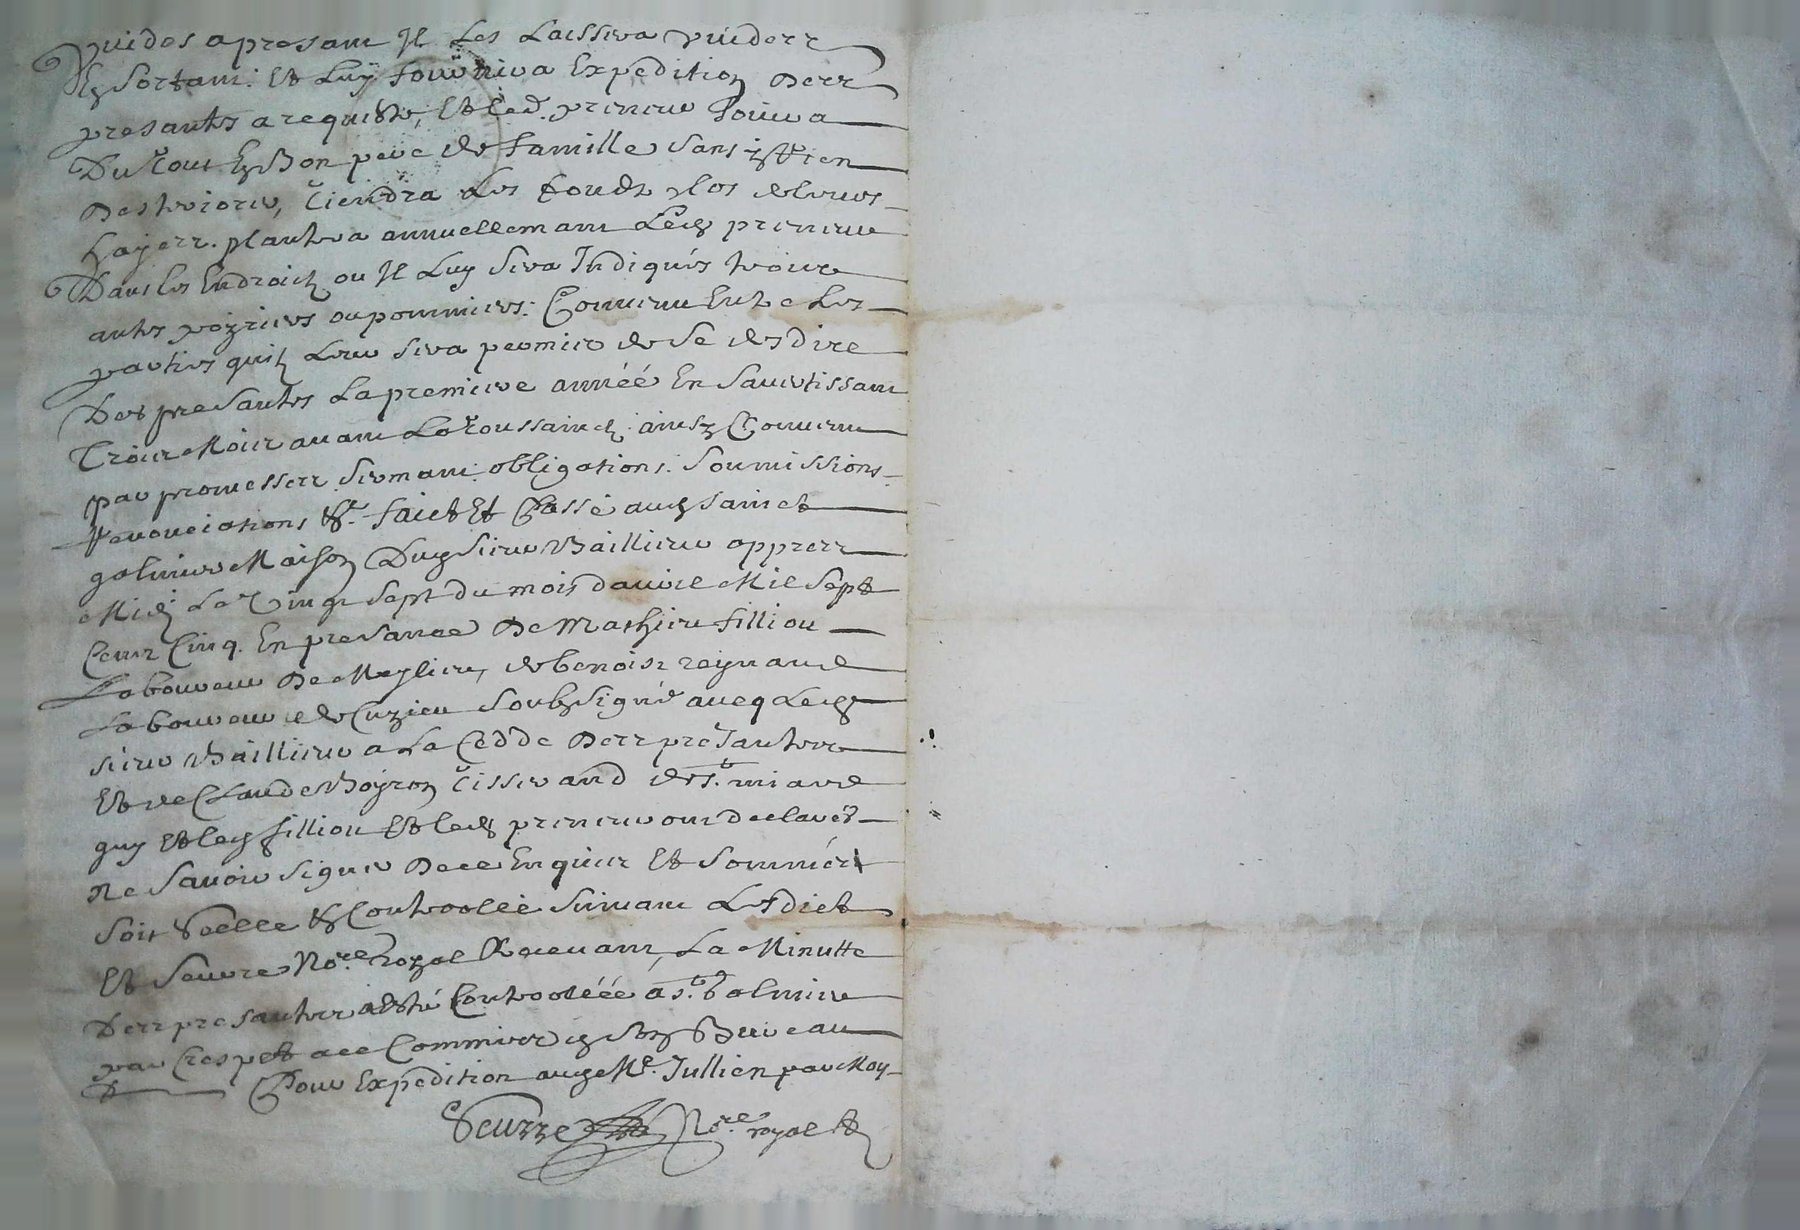 vuides apresant Il Les Laissera vuides
En Sortant. Et Luy fournira Expedition Des
presantes a requeste, Et led. preneur Jouira
Du tout En Bon pere de famille sans y rien
Desteriorer, tiendra Les fonds clos de leurs
hayes. plantera annuellemant Led. preneur
Dans les Endroicts ou Il Luy sera Indiqués trois
antes poiriers ou pommiers. Convenu Entre Les
parties quil Leur sera permier de se desdire
Des presantes La premiere année En Savertissant
Trois Mois avant La toussainct. ainsy Convenu
par promesses sermant obligations. Soumissions
Renonciations &c. faict Et Passé aud. sainct
galmier Maison Dud. sieur Baillieu appres
Midy Le Vingt sept du mois davril Mil Sept
Cent Cinq. En presance De Mathieu filliou
Laboureur De Meylieu, de benoist reynaud
Laboureur de Cuzieu Soubsigné avecq Led.
sieur Baillieu a La Cedde Des presantes
Et de Claude Boyron tisserand de St. miard
quy Et led. filliou Et led. preneur ont declaré
Ne savoir signer De ce Enquis Et sommés
soit scellé & Controollé suivant L'Edict
Et Seurre Nore. royal Recevant, La Minutte
Des presantes a esté Controolééé a St. Galmier
par Crespet a ce Commis en son Bureau
Pour Expedition aud. Me. Jullien par Moy
Seurre Nore. royal